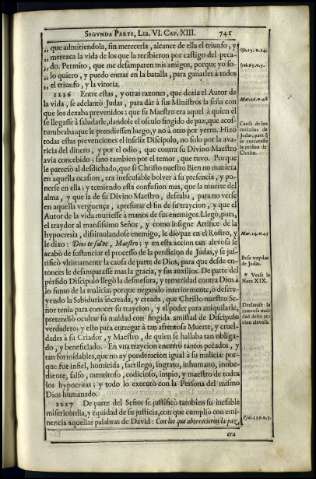 SEGUNDA PARTE, LIB. VI. CAP. XIII. 745
„ que admitiendola, sin merecerla, alcance de ella el triunfo, y
„ merezca la vida de los que la recibieron por castigo del peca-
„ do. Permito, que me desamparen mis amigos, porque yo so-
„ lo quiero, y puedo entrar en la batalla, para ganarles à todos
„ el triunfo, y la vitoria.
1226 Entre estas, y otras razones, que dezia el Autor de
la vida, se adelantò Judas, para dàr à sus Ministros la seña con
que los dexaba prevenidos: que su Maestro era aquel à quien èl
se llegasse à saludarle, dandole el osculo fingido de paz, que acos-
tumbraba; que le prendiessen luego, y no à otro por yerro. Hizo
todas estas prevenciones el infeliz Discipulo, no solo por la ava-
ricia del dinero, y por el odio, que contra su Divino Maestro
avia concebido; sino tambien por el temor, que tuvo. Porque
le pareciò al desdichado, que si Christo nuestro Bien no moria
en aquella ocasion, era inescusable bolver à su presencia, y po-
nerse en ella; y temiendo esta confusion mas, que la muerte del
alma, y que la de su Divino Maestro, deseaba, para no verse
en aquella verguença, apresurar el fin de su traycion, y que el
Autor de la vida muriesse à manos de sus enemigos. Llegò, pues,
el traydor al mansissimo Señor, y como insigne Artifice de la
hypocresia, dissimulandose enemigo, le diò paz en el Rostro, y
le dixo: Dios te salve, Maestro; y en esta accion tan aleve se
acabò de sustanciar el processo de la perdicion de Judas, y se jus-
tificò ultimamente la causa de parte de Dios, para que desde en-
tonces le desamparasse mas la gracia, y sus auxilios. De parte del
pèrfido Discipulo llegò la desmesura, y temeridad contra Dios à
lo sumo de la malicia: porque negando interiormente, ò descre-
yendo la Sabiduria increada, y creada, que Christo nuestro Se-
ñor tenia para conocer su traycion, y el poder para aniquilarle,
pretendiò ocultar su maldad con fingida amistad de Discipulo
verdadero; y esto para entregar à tan afrentosa Muerte, y cruel-
dades à su Criador, y Maestro, de quien se hallaba tan obliga-
do, y beneficiado. En una traycion encerrò tantos pecados, y
tan formidables, que no ay ponderacion igual à su malicia: por-
que fue infiel, homicida, sacrilego, ingrato, inhumano, inobe-
diente, falso, mentiroso, codicioso, impio, y maestro de todos
los hypocritas; y todo lo executò con la Persona del mismo
Dios humanado.
1227 De parte del Señor se justificò tambien su inefable
misericordia, y equidad de su justicia, con que cumpliò con emi-
nencia aquellas palabras de David: Con los que aborrecieron la paz,
era
Causa de las
Judas, para
Christo.
Beso vrydor
de Judas.
* Vease la
Nota XIX.